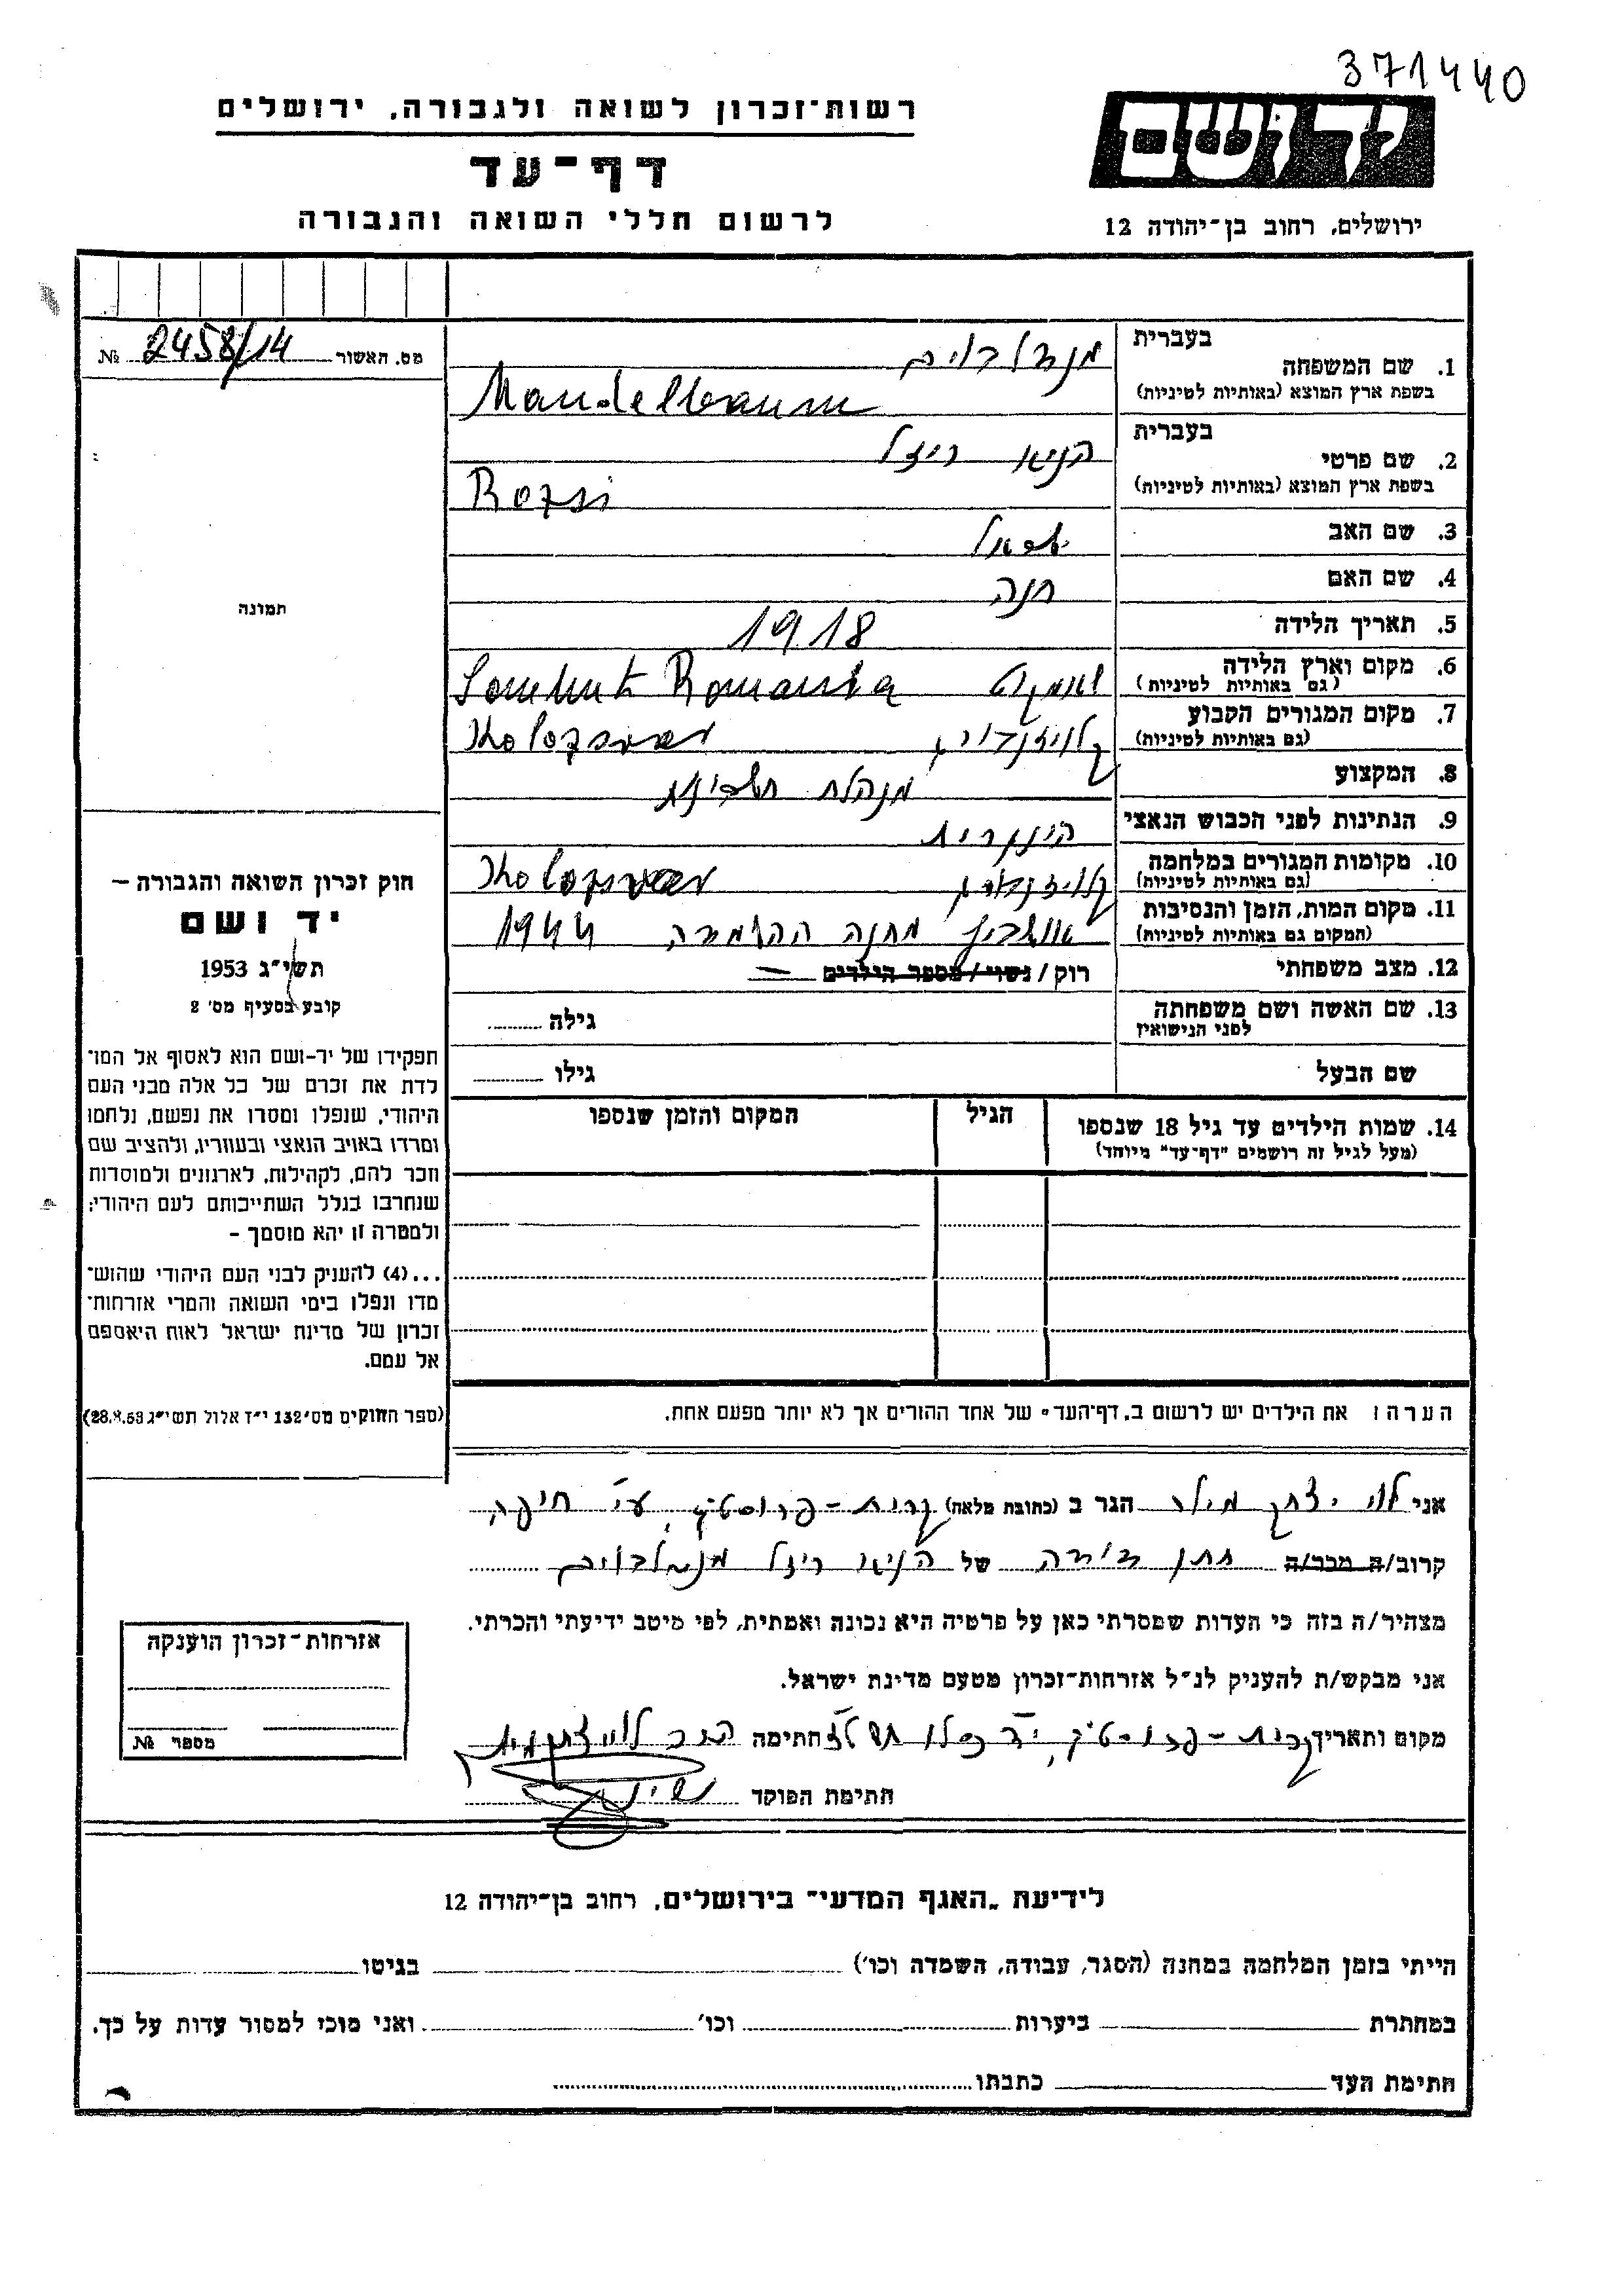 371440
רשות־זכרון לשואה ולגבורה, ירושלים
דף־עד
לרשום חללי השואה והגבורה
יד ושם
ירושלים, רחוב בן־יהודה 12
מס. האשור 2458/14 №
תמונה
חוק זכרון השואה והגבורה –
יד ושם
תשי״ג 1953
קובע בסעיף מס׳ 2
תפקידו של יד-ושם הוא לאסוף אל המו־
לדת את זכרם של כל אלה מבני העם
היהודי, שנפלו ומסרו את נפשם, נלחמו
ומרדו באויב הנאצי ובעוזריו, ולהציב שם
וזכר להם, לקהילות, לארגונים ולמוסדות
שנחרבו בגלל השתייכותם לעם היהודי;
ולמטרה זו יהא מוסמך –
...(4) להעניק לבני העם היהודי שהוש־
מדו ונפלו בימי השואה והמרי אזרחות־
זכרון של מדינת ישראל לאות היאספם
אל עמם.
(ספר החוקים מס׳ 132 י״ז אלול תשי״ג 28.8.53)
1. שם המשפחה בעברית מנדלבוים
בשפת ארץ המוצא (באותיות לטיניות) Mandelbaum
2. שם פרטי בעברית הניא רײזל
בשפת ארץ המוצא (באותיות לטיניות) Rozsi
3. שם האב
4. שם האם חנה
5. תאריך הלידה 1918
6. מקום וארץ הלידה (גם באותיות לטיניות) Romania
7. מקום המגורים הקבוע (גם באותיות לטיניות) קלויזנבורג Kolozsvar
8. המקצוע מנהלת
9. הנתינות לפני הכבוש הנאצי הונגרית
10. מקומות המגורים במלחמה (גם באותיות לטיניות) קלויזנבורג Kolozsvar
11. מקום המות, הזמן והנסיבות (המקום גם באותיות לטיניות) אושביץ מחנה ההשמדה 1944
12. מצב משפחתי רוק / נשוי / מספר הילדים
13. שם האשה ושם משפחתה לפני הנישואין גילה
שם הבעל גילו
14. שמות הילדים עד גיל 18 שנספו הגיל המקום והזמן שנספו
(מעל לגיל זה רושמים "דף־עד" מיוחד)
הערה: את הילדים יש לרשום ב„דף־העד" של אחד ההורים אך לא יותר מפעם אחת.
אני לוי יצחק מילר הגר ב (כתובת מלאה) קרית-פרוסטיג, ע״י חיפה
קרוב/ה מכר/ה חתן דודה של הניא רײזל מנדלבוים
מצהיר/ה בזה כי העדות שמסרתי כאן על פרטיה היא נכונה ואמתית, לפי מיטב ידיעתי והכרתי.
אני מבקש/ת להעניק לנ״ל אזרחות־זכרון מטעם מדינת ישראל.
מקום ותאריך קרית-פרוסטיג, כסלו חתימה הרב לוי יצחק
חתימת הפוקד
אזרחות־זכרון הוענקה
מספר №
לידיעת „האגף המדעי״ בירושלים, רחוב בן־יהודה 12
הייתי בזמן המלחמה במחנה (הסגר, עבודה, השמדה וכו׳) בגיטו
במחתרת ביערות וכו׳ ואני מוכן למסור עדות על כך.
חתימת העד כתבתו